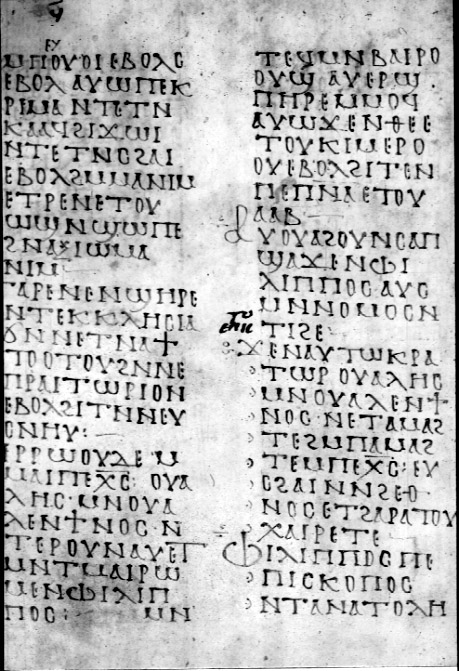 ⲉⲩ
ⲙⲡⲟⲩⲟⲓ ⲉⲃⲟⲗ ϭ
ⲉⲃⲟⲗ ⲁⲩⲱ ⲡⲉⲕ
ⲣⲓⲙⲁ ⲛⲧⲉⲧⲛ
ⲕⲁⲁϥϩⲓϫⲱⲓ
ⲛⲧⲉⲧⲛⲥϩⲁⲓ
ⲉⲃⲟⲗϩⲙⲙⲁⲛⲓⲙ
ⲉⲧⲣⲉⲛⲉⲧⲟⲩ
ⲱϣⲛϣⲱⲡⲉ
ϩⲛⲁⲝⲓⲱⲙⲁ
ⲛⲓⲙ
ⲅⲁⲣⲉⲛⲉⲛϣⲏⲣⲉ
ⲛⲧⲉⲕⲕⲗⲏⲥⲓⲁ
ϭⲛⲛⲉⲧⲛⲁϯ
ⲧⲟⲟⲧⲟⲩϩⲛⲛⲉ
ⲡⲣⲁⲓⲧⲱⲣⲓⲟⲛ
ⲉⲃⲟⲗϩⲓⲧⲛⲛⲉⲩ
ⲥⲛⲏⲩ:
ⲉⲣⲣⲱⲟⲩⲇⲉ ⲙ
ⲙⲁⲓⲡⲉⲭ̅ⲥ̅: ⲟⲩⲁ
ⲗⲏⲥ· ⲙⲛⲟⲩⲁ
ⲗⲉⲛϯⲛⲟⲥ· ⲛ
ⲧⲉⲣⲟⲩⲛⲁⲩⲉⲧ
ⲙⲛⲧⲙⲁⲓⲣⲱ
ⲙⲉⲛⲫⲓⲗⲓⲡ
ⲡⲟⲥ: ⲙⲛ
ⲧⲉϥⲙⲛⲃⲁⲓⲣⲟ
ⲟⲩϣ ⲁⲩⲉⲣϣ
ⲡⲏⲣⲉⲙⲙⲟϥ
ⲁⲩⲱϫⲉⲛⲑⲉⲉ
ⲧⲟⲩⲕⲓⲙⲉⲣⲟ
ⲟⲩⲉⲃⲟⲗϩⲓⲧⲉⲛ
ⲡⲉⲡⲛⲁⲉⲧⲟⲩ
ⲁⲁⲃ
ⲁⲩⲟⲩⲁϩⲟⲩⲛⲥⲁⲡ
ϣⲁϫⲉⲛⲫⲓ
ⲗⲓⲡⲡⲟⲥⲁⲩⲥ
ⲙⲛⲛⲟⲙⲟⲥⲛ
ⲧⲓϩⲉ
ϫⲉⲛⲁⲩⲧⲱⲕⲣⲁ
ⲧⲱⲣⲟⲩⲁⲗⲏⲥ
ⲙⲛⲟⲩⲁⲗⲉⲛϯ
ⲛⲟⲥ· ⲛⲉⲧⲁⲙⲁϩ
ⲧⲉϩⲙⲡⲁⲙⲁϩ
ⲧⲉⲙⲡⲉⲭ̅ⲥ̅: ⲉⲩ
ⲥϩⲁⲓⲛⲛϩⲉⲑ
ⲛⲟⲥⲉⲧϩⲁⲣⲁⲧⲟⲩ
ⲭⲁⲓⲣⲉⲧⲉ
ⲫⲓⲗⲓⲡⲡⲟⲥ ⲡⲉ
ⲡⲓⲥⲕⲟⲡⲟⲥ
ⲛⲧⲁⲛⲁⲧⲟⲗⲏ